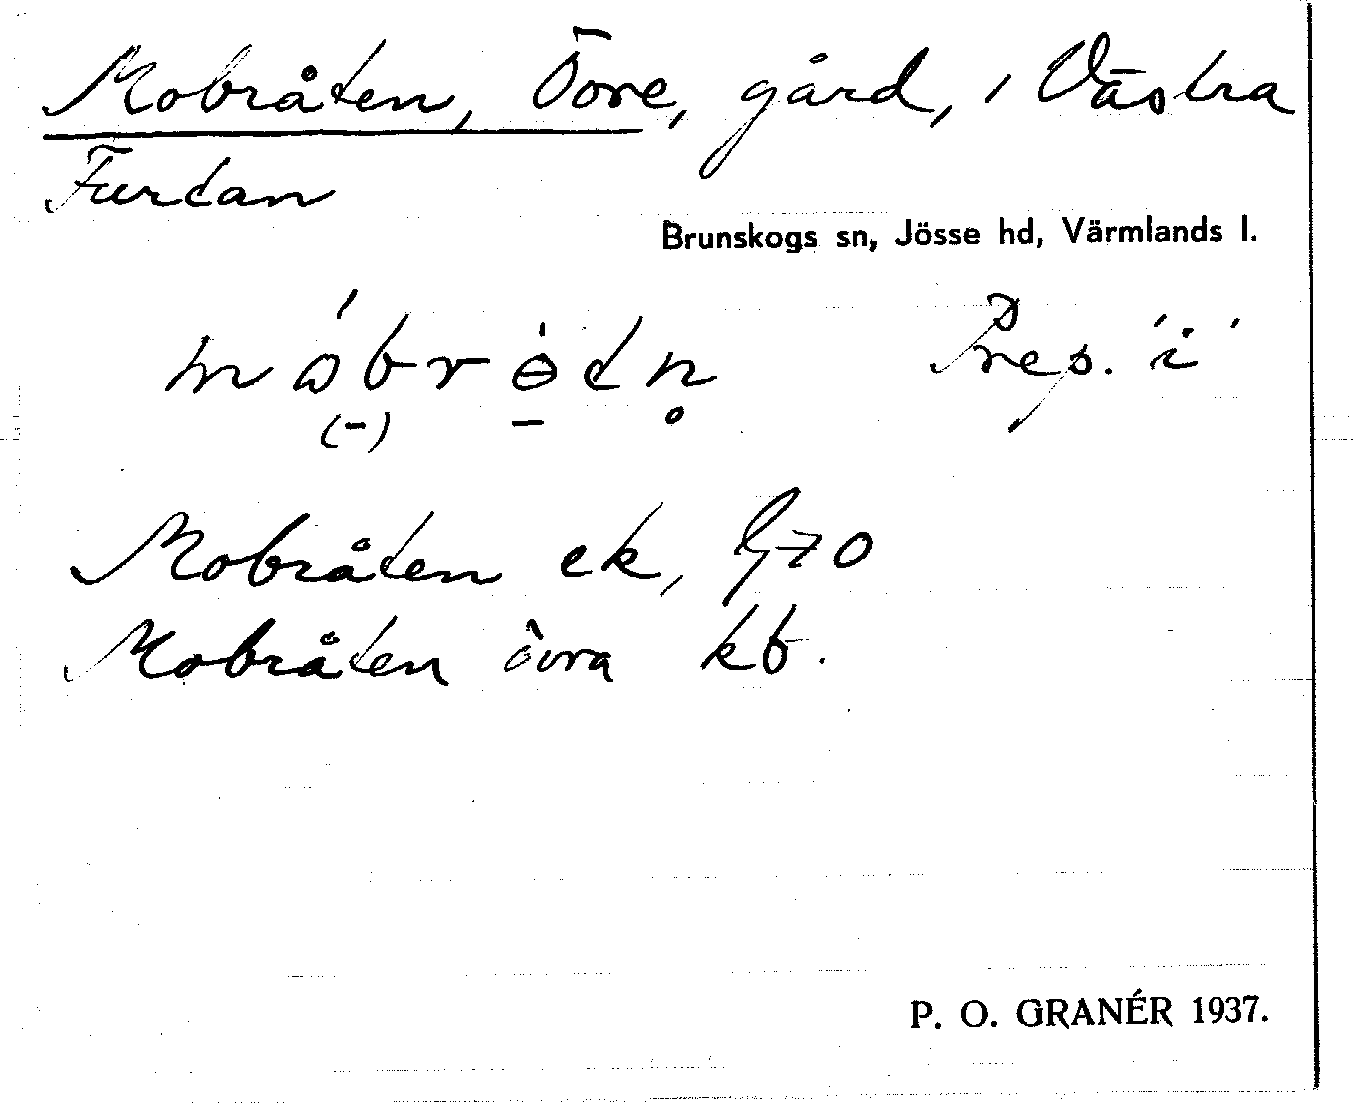 Mobråten, Övre, gård, i Västra
Furtan
Brunskogs sn, Jösse hd, Värmlands l.
Prep. 'i'
Mobråten ek, G70
Mobråten övra kb.
P. O. GRANÉR 1937.